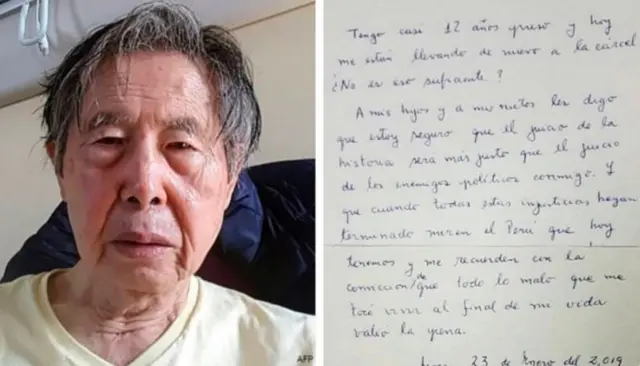 Tengo casi 12 años preso y hoy
me están llevando de nuevo a la cárcel
¿No es eso suficiente?
A mis hijos y a mis nietos les digo
que estoy seguro que el juicio de la
historia será más justo que el juicio
de los enemigos políticos conmigo. Y
que cuando todas estas injusticias hayan
terminado miren el Perú que hoy
tenemos y me recuerden con la
convicción de que todo lo malo que me
tocó vivir al final de mi vida
valió la pena.
23 de Enero del 2,019
AFP